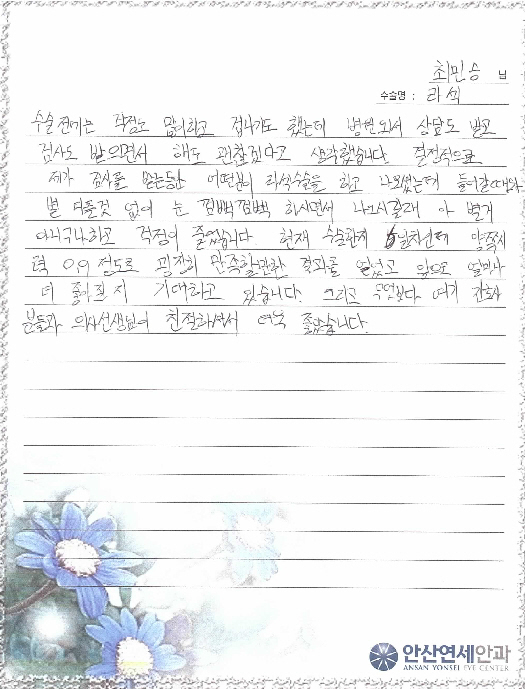 최민승 님
수술명 : 라섹
수술 전에는 걱정도 많이하고 겁나기도 했는데 병원와서 상담도 받고
검사도 받으면서 해도 괜찮겠다고 생각했습니다. 결정적으로
제가 검사를 받는동안 어떤분이 라식수술을 하고 나오셨는데 들어갈때와
별 다를것 없이 눈 깜빡깜빡 하시면서 나오시길래 아 별거
아니구나하고 걱정이 줄었습니다. 현재 수술한지 일차인데 양쪽시
력 0.9 정도로 굉장히 만족할만한 결과를 얻었고 앞으로 얼마나
더 좋아질지 기대하고 있습니다. 그리고 무엇보다 여기 간호사
분들과 의사선생님이 친절하셔서 더욱 좋았습니다.
안산연세안과
ANSAN YONSEI EYE CENTER